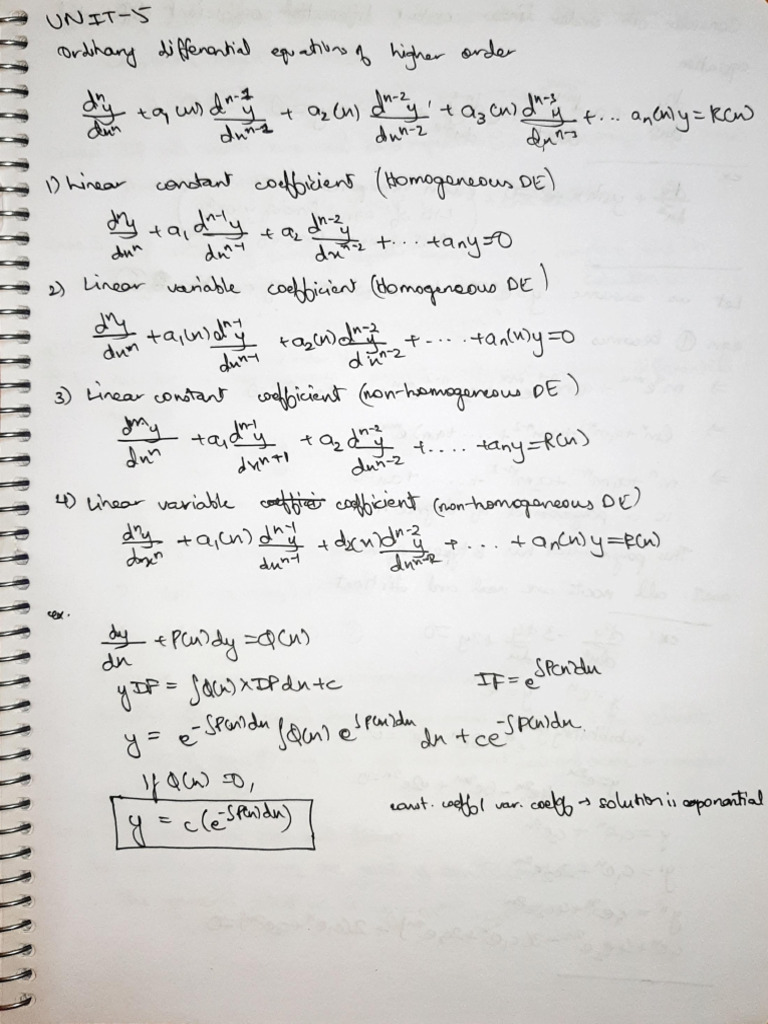 UNIT-5
Ordinary differential equations of higher order
dⁿy/dxⁿ + a₁(x) dⁿ⁻¹y/dxⁿ⁻¹ + a₂(x) dⁿ⁻²y/dxⁿ⁻² + a₃(x) dⁿ⁻³y/dxⁿ⁻³ + ... aₙ(x)y = R(x)
1) Linear constant coefficient (Homogeneous DE)
dⁿy/dxⁿ + a₁ dⁿ⁻¹y/dxⁿ⁻¹ + a₂ dⁿ⁻²y/dxⁿ⁻² + ... + aₙy = 0
2) Linear variable coefficient (Homogeneous DE)
dⁿy/dxⁿ + a₁(x) dⁿ⁻¹y/dxⁿ⁻¹ + a₂(x) dⁿ⁻²y/dxⁿ⁻² + .... + aₙ(x)y = 0
3) Linear constant coefficient (non-homogeneous DE)
dⁿy/dxⁿ + a₁ dⁿ⁻¹y/dxⁿ⁺¹ + a₂ dⁿ⁻²y/dxⁿ⁻² + .... + aₙy = R(x)
4) Linear variable coefficient (non-homogeneous DE)
dⁿy/dxⁿ + a₁(x) dⁿ⁻¹y/dxⁿ⁻¹ + a₂(x) dⁿ⁻²y/dxⁿ⁻² + ... + aₙ(x)y = R(x)
ex.
dy/dx + P(x)dy = Q(x)
yIF = ∫Q(x) × IF dx + c IF = e^∫P(x)dx
y = e^-∫P(x)dx ∫Q(x) e^∫P(x)dx dx + ce^-∫P(x)dx
If Q(x) = 0,
y = c(e^-∫P(x)dx) const. coeff/ var. coeff → solution is exponential